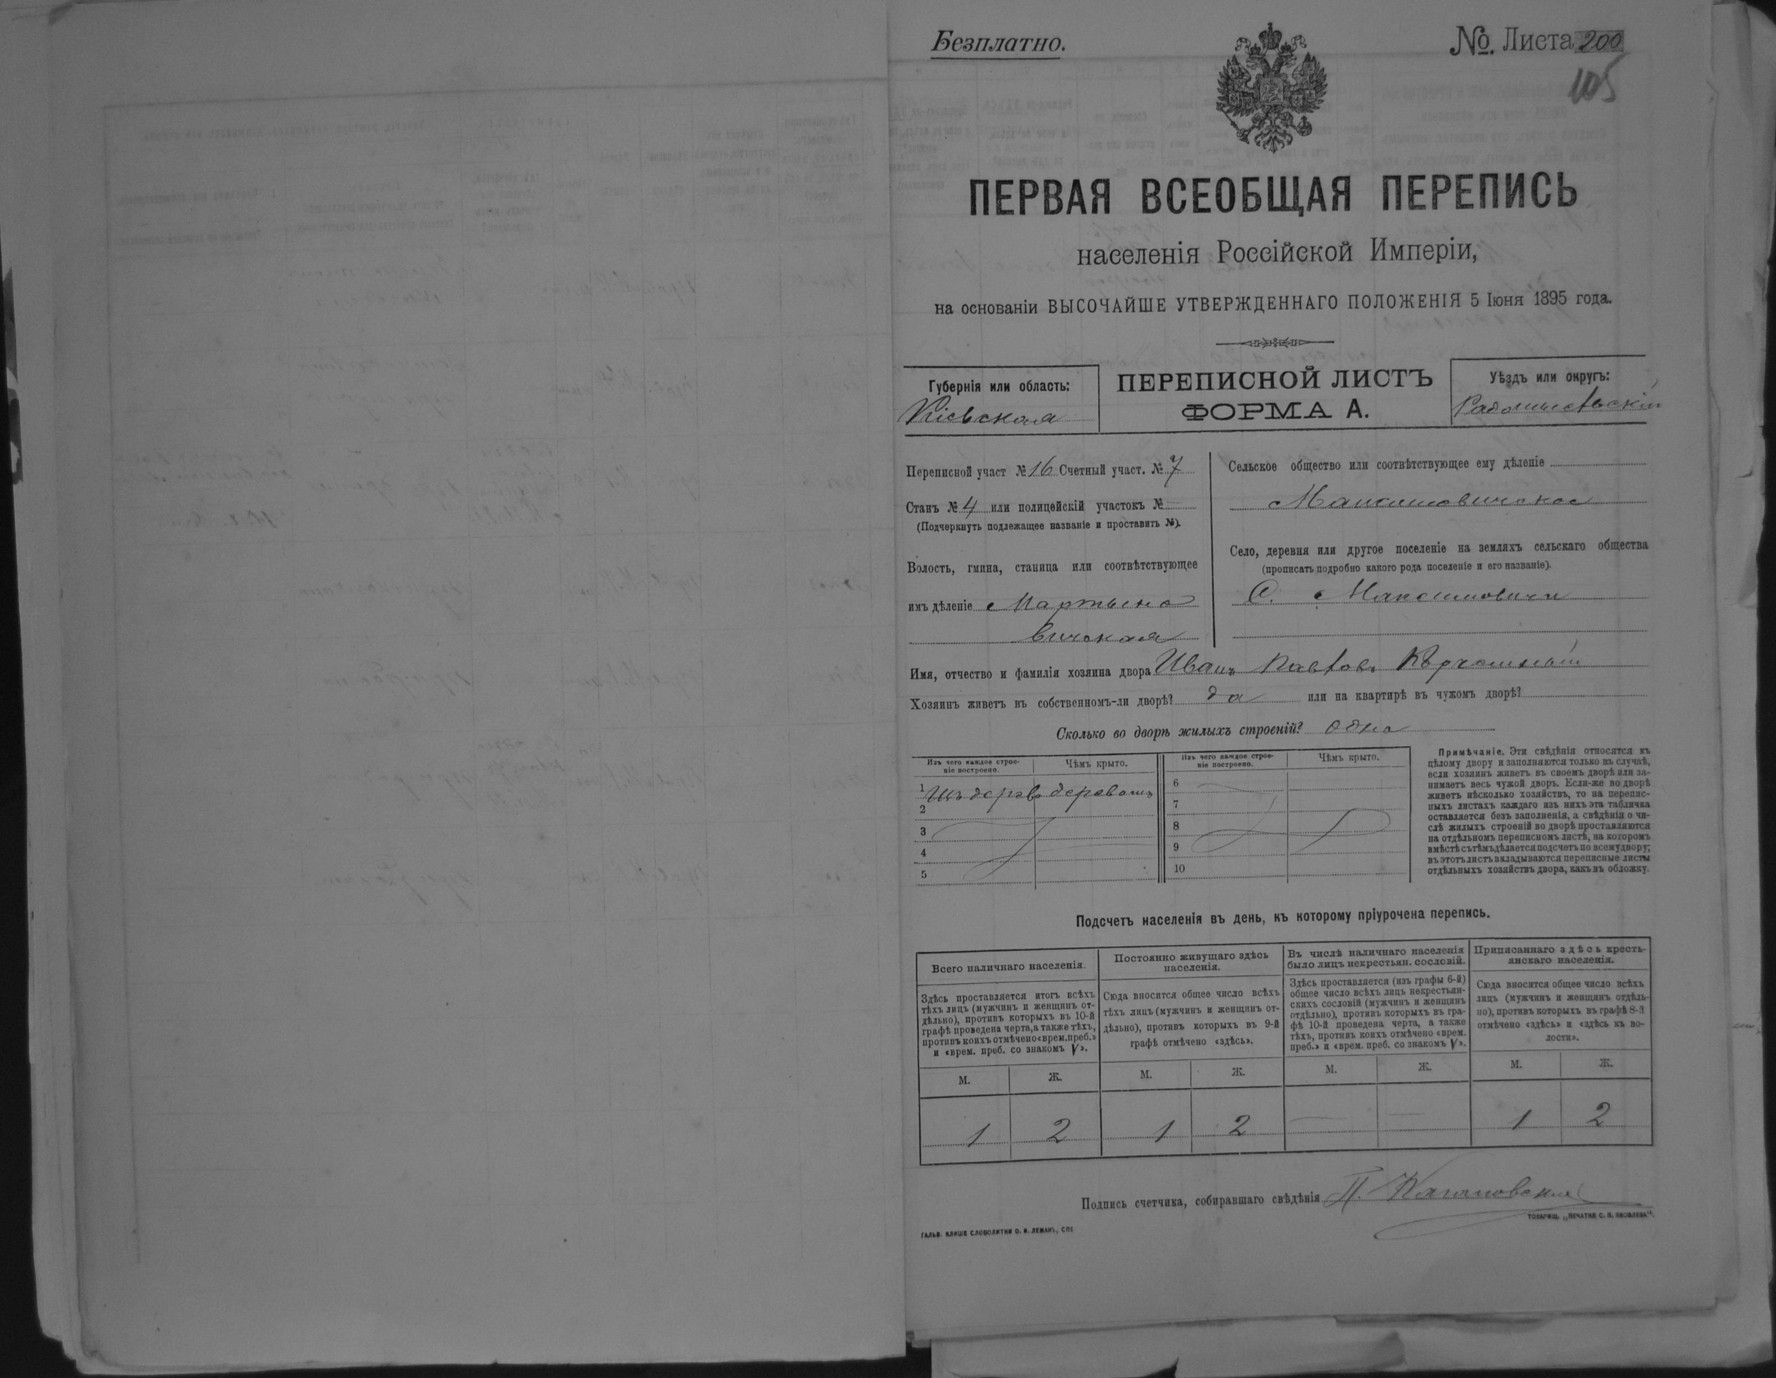 Безплатно.
№. Листа 200
105
ПЕРВАЯ ВСЕОБЩАЯ ПЕРЕПИСЬ
населенія Россійской Имперіи,
на основаніи ВЫСОЧАЙШЕ УТВЕРЖДЕННАГО ПОЛОЖЕНІЯ 5 Іюня 1895 года.
Губернія или область:
Кіевская
ПЕРЕПИСНОЙ ЛИСТЪ
ФОРМА А.
Уѣздъ или округъ:
Радомысльскій
Переписной участ № 16 Счетный участ. № 7
Станъ № 4 или полицейскій участокъ №
(Подчеркнуть подлежащее названіе и проставить №).
Волость, гмина, станица или соотвѣтствующее
имъ дѣленіе Мартыно
вичская
Сельское общество или соотвѣтствующее ему дѣленіе
Максимовичское
Село, деревня или другое поселеніе на земляхъ сельскаго общества
(прописать подробно какого рода поселеніе и его названіе).
С. Максимовичи
Имя, отчество и фамилія хозяина двора Иванъ Павловъ
Хозяинъ живетъ въ собственномъ-ли дворѣ? да или на квартирѣ въ чужомъ дворѣ?
Сколько во дворѣ жилыхъ строеній? одно
Изъ чего каждое строе-
ніе построено.
Чѣмъ крыто.
1 Изъ дерев деревомъ
2
3
4
5
Изъ чего каждое строе-
ніе построено.
Чѣмъ крыто.
6
7
8
9
10
Примѣчаніе. Эти свѣдѣнія относятся къ
цѣлому двору и заполняются только въ случаѣ,
если хозяинъ живетъ въ своемъ дворѣ или за-
нимаетъ весь чужой дворъ. Если-же во дворѣ
живетъ нѣсколько хозяйствъ, то на перепис-
ныхъ листахъ каждаго изъ нихъ эта табличка
оставляется безъ заполненія, а свѣдѣнія о чи-
слѣ жилыхъ строеній во дворѣ проставляются
на отдѣльномъ переписномъ листѣ, на которомъ
вмѣстѣ съ тѣмъ дѣлается подсчетъ по всему двору;
въ этотъ листъ вкладываются переписные листы
отдѣльныхъ хозяйствъ двора, какъ въ обложку.
Подсчетъ населенія въ день, къ которому пріурочена перепись.
Всего наличнаго населенія.
Здѣсь проставляется итогъ всѣхъ
тѣхъ лицъ (мужчинъ и женщинъ от-
дѣльно), противъ которыхъ въ 10-й
графѣ проведена черта, а также тѣхъ,
противъ коихъ отмѣчено «врем. преб.»
и «врем. преб. со знакомъ V».
М. Ж.
1 2
Постоянно живущаго здѣсь
населенія.
Сюда вносится общее число всѣхъ
тѣхъ лицъ (мужчинъ и женщинъ от-
дѣльно), противъ которыхъ въ 9-й
графѣ отмѣчено «здѣсь».
М. Ж.
1 2
Въ числѣ наличнаго населенія
было лицъ некрестьян. сословій.
Здѣсь проставляется (изъ графы 6-й)
общее число всѣхъ лицъ некрестьян-
скихъ сословій (мужчинъ и женщинъ
отдѣльно), противъ которыхъ въ гра-
фѣ 10-й проведена черта, а также
тѣхъ, противъ коихъ отмѣчено «врем.
преб.» и «врем. преб. со знакомъ V».
М. Ж.
— —
Приписаннаго здѣсь кресть-
янскаго населенія.
Сюда вносится общее число всѣхъ
лицъ (мужчинъ и женщинъ отдѣль-
но), противъ которыхъ въ графѣ 8-й
отмѣчено «здѣсь» и «здѣсь къ во-
лости».
М. Ж.
1 2
Подпись счетчика, собиравшаго свѣдѣнія П.
ГАЛЬВ. КЛИШЕ СЛОВОЛИТНИ О. И. ЛЕМАНЪ, СПБ
ТОВАРИЩ. „ПЕЧАТНЯ С. П. ЯКОВЛЕВА".